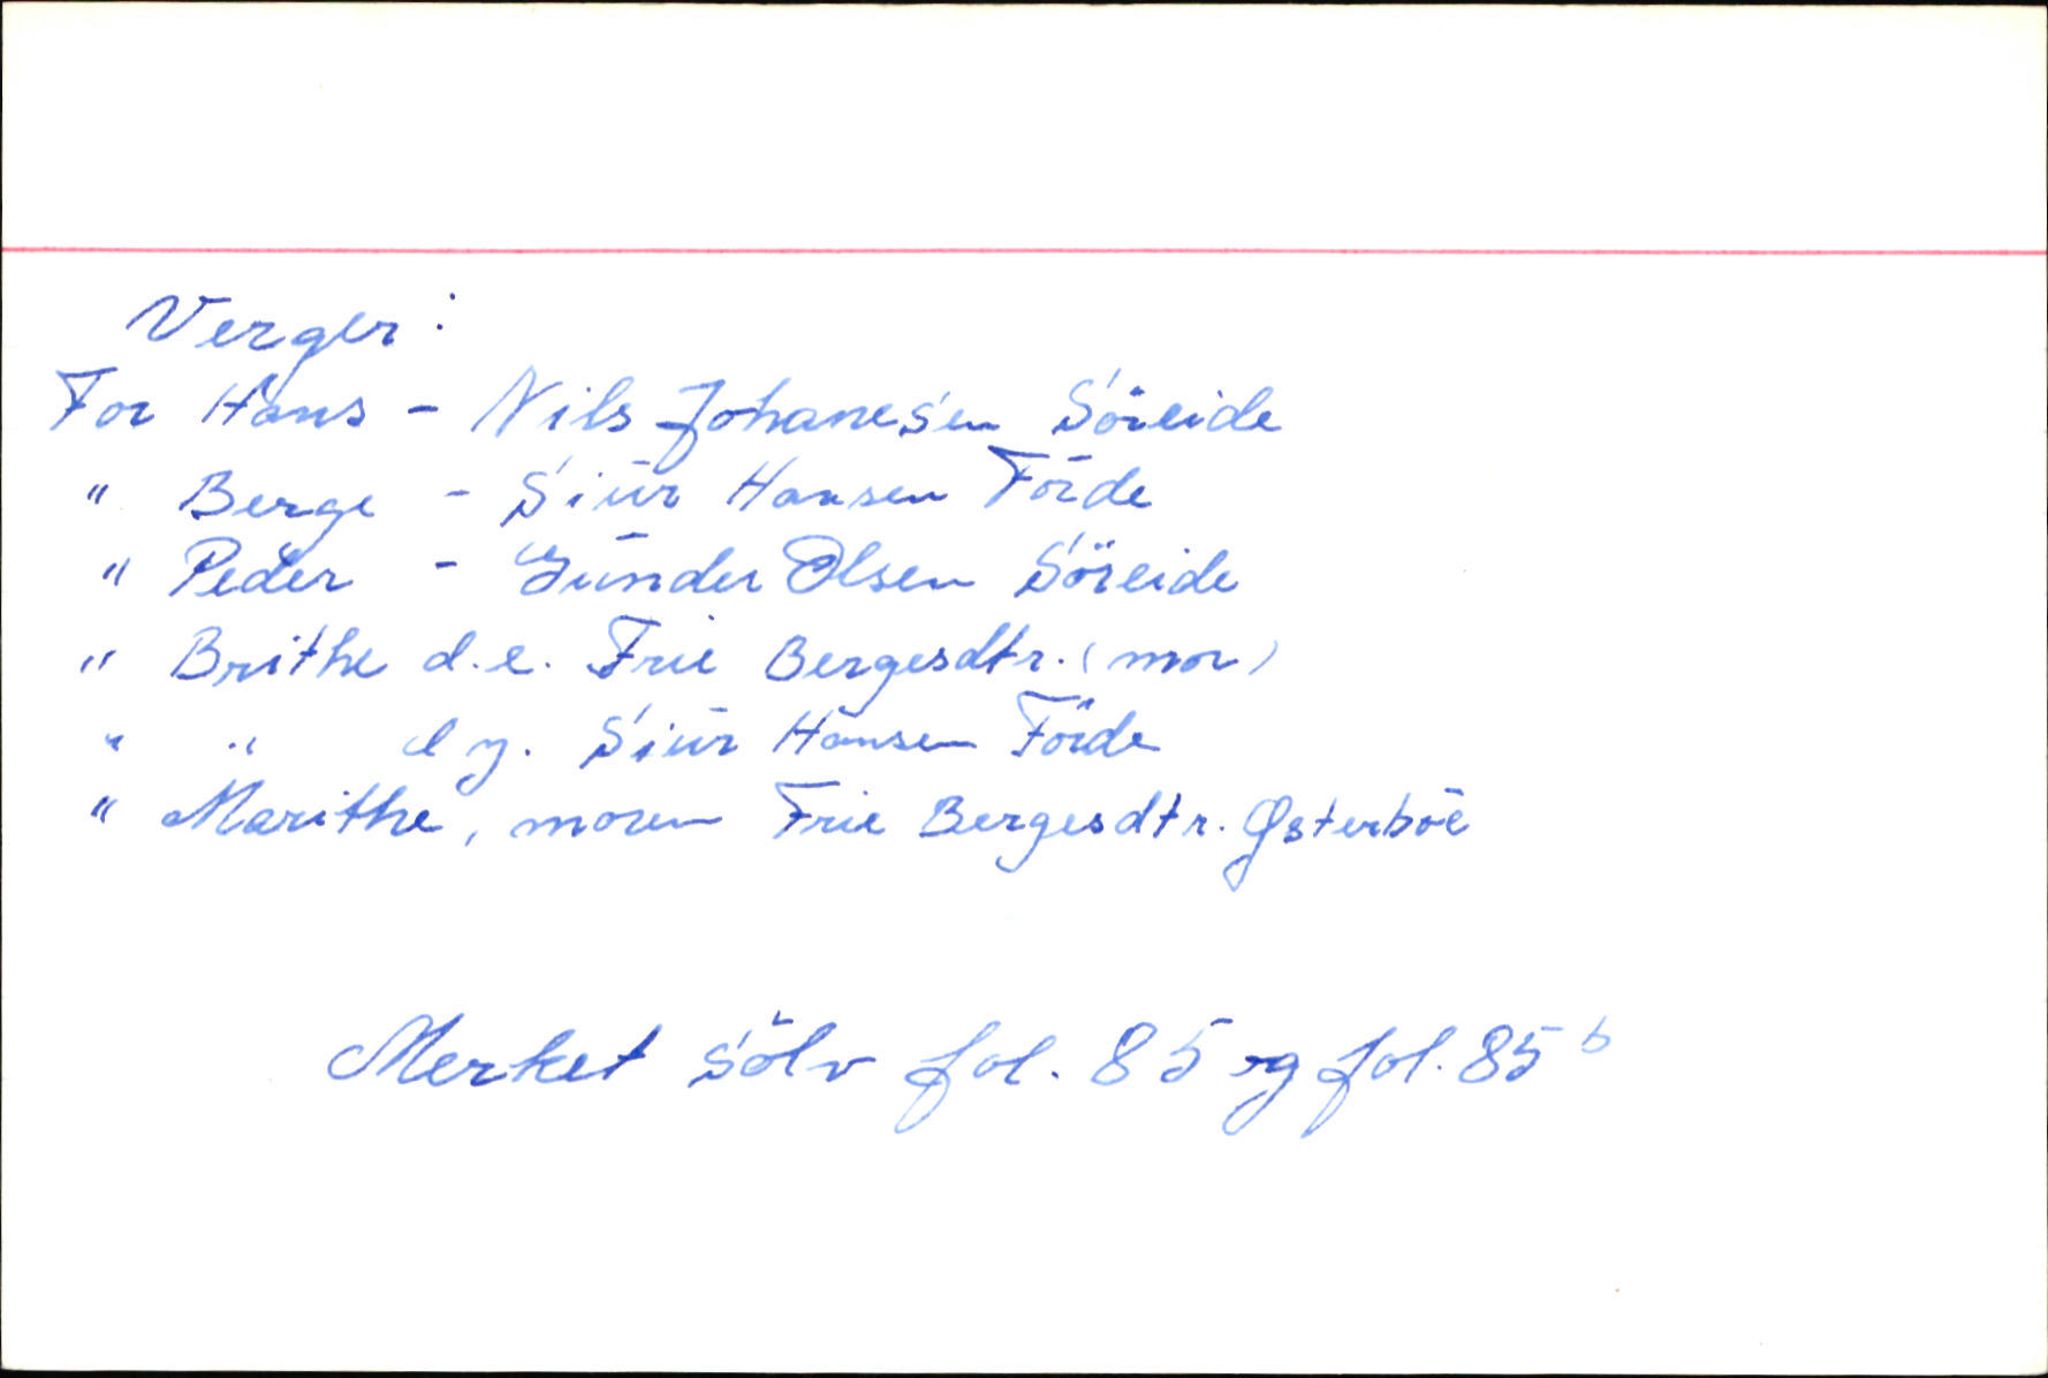 Verger:
For Hans - Nils Johanesen Söreide
" Berge - Siür Hansen Förde
" Peder - Günder Olsen Söreide
" Brithe d.e. Frie Bergesdtr. (mor)
" " d y. Siür Hansen Förde
" Marithe, moren Frie Bergesdtr. Østerböe
Merket sölv fol. 85 og fol. 85 b